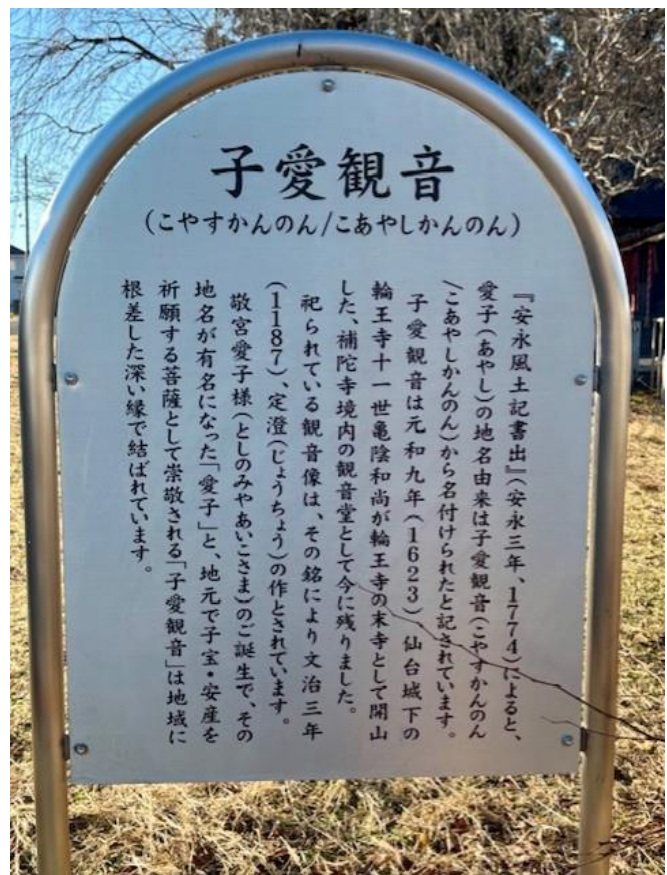 子愛観音
(こやすかんのん/こあやしかんのん)
『安永風土記書出』(安永三年、1774)によると、
愛子(あやし)の地名由来は子愛観音(こやすかんのん
/こあやしかんのん)から名付けられたと記されています。
子愛観音は元和九年(1623) 仙台城下の
輪王寺十一世亀陰和尚が輪王寺の末寺として開山
した、補陀寺境内の観音堂として今に残りました。
祀られている観音像は、その銘により文治三年
(1187)、定澄(じょうちょう)の作とされています。
敬宮愛子様(としのみやあいこさま)のご誕生で、その
地名が有名になった「愛子」と、地元で子宝・安産を
祈願する菩薩として崇敬される「子愛観音」は地域に
根差した深い縁で結ばれています。